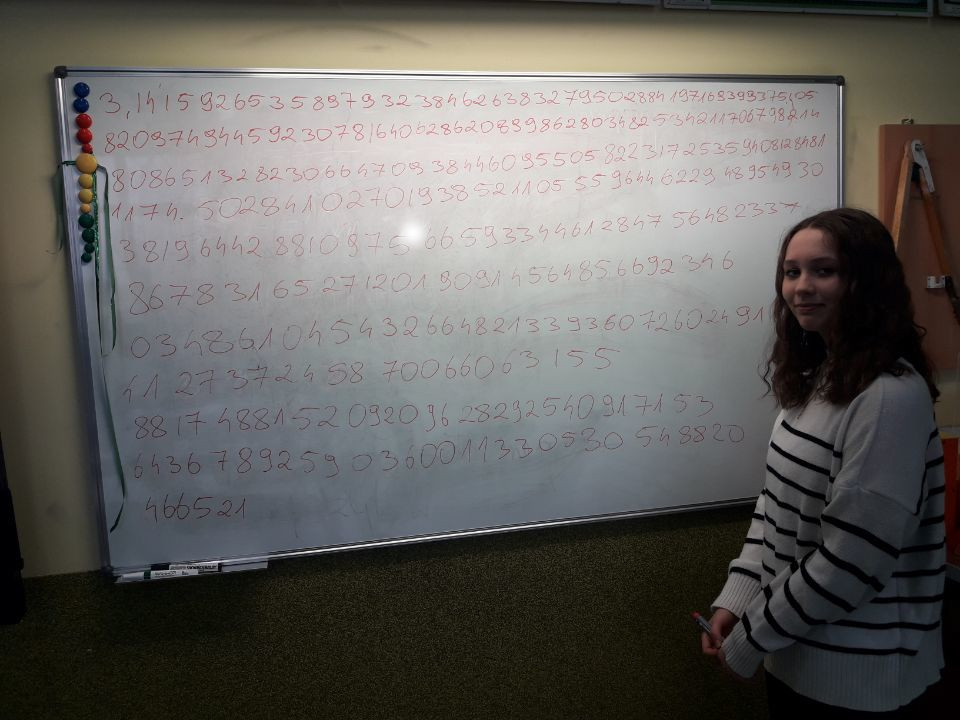 3,1415926535897932384626383279502884197169399375105
82097494459230781640628620899862803482534211706798214
8086513282306647093844609550582231725359408128481
1174. 50284102701938521105559644622948954930
3819 6442 8810975 6659334461284756482337
8678316527120190914564856692346
03486104543266482133936072602491
41 273724 58 70066063155
8817 488152 0920 96 282925409171 53
6436 789259 036001133053054 8820
466521